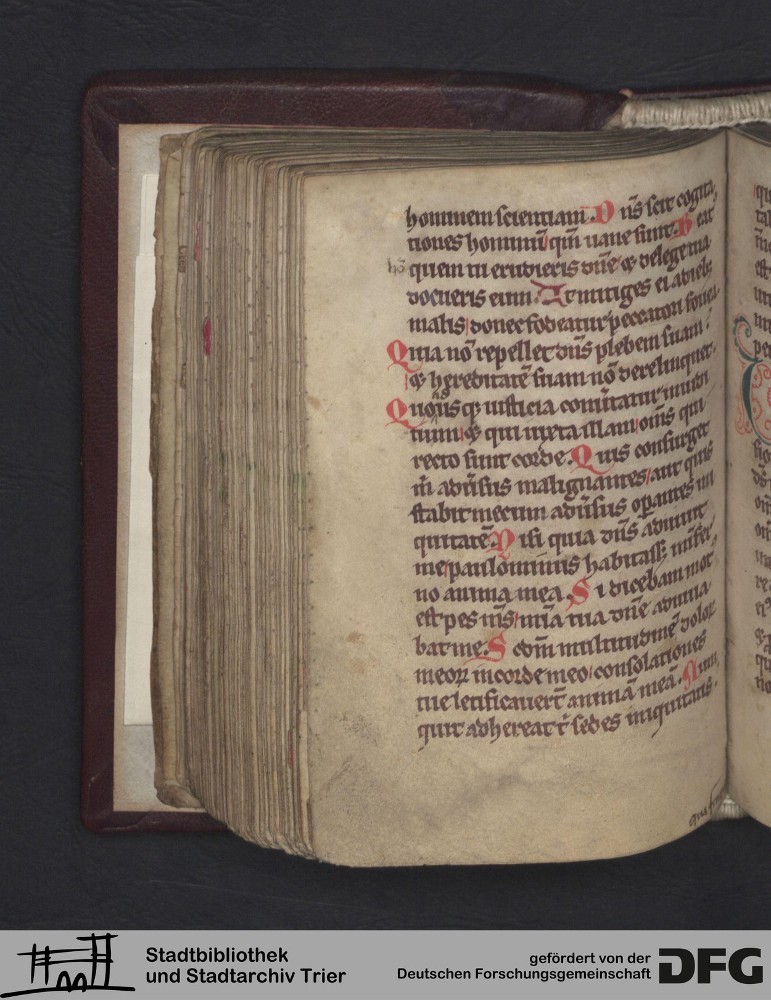 hominem scientiam. Dñs scit cogita
tiones hominũ qm̃ uane sunt. Beat
hõ quem tu erudieris dñe ⁊ de lege tua
docueris eum. Ut mitiges ei a dieb;
malis donec fodeatur peccatori fouea
Quia nõ repellet dñs plebem suam:
⁊ hereditatẽ suam nõ derelinquet.
Quo iusticia conũtatur in iudi
tium ⁊ qui iuxta illam om̃s qui
recto sunt corde. Quis consurget
m̃ adũsus malignantes aut quis
stabit mecum adũsus oꝑantes ini
quitatẽ. Nisi quia dñs adiuuit
me paulominus habitass; in infer
no anima mea. Si dicebam mot
est pes ms̃ mĩa tua dñe adiuua
bat me. Scdm̃ multitudinẽ dolor
meoꝝ in corde meo consolationes
tue letificauer̃t animã meã. Num
quit adhereat t̃ sedes iniquitatis.
Stadtbibliothek
und Stadtarchiv Trier
gefördert von der
Deutschen Forschungsgemeinschaft
DFG